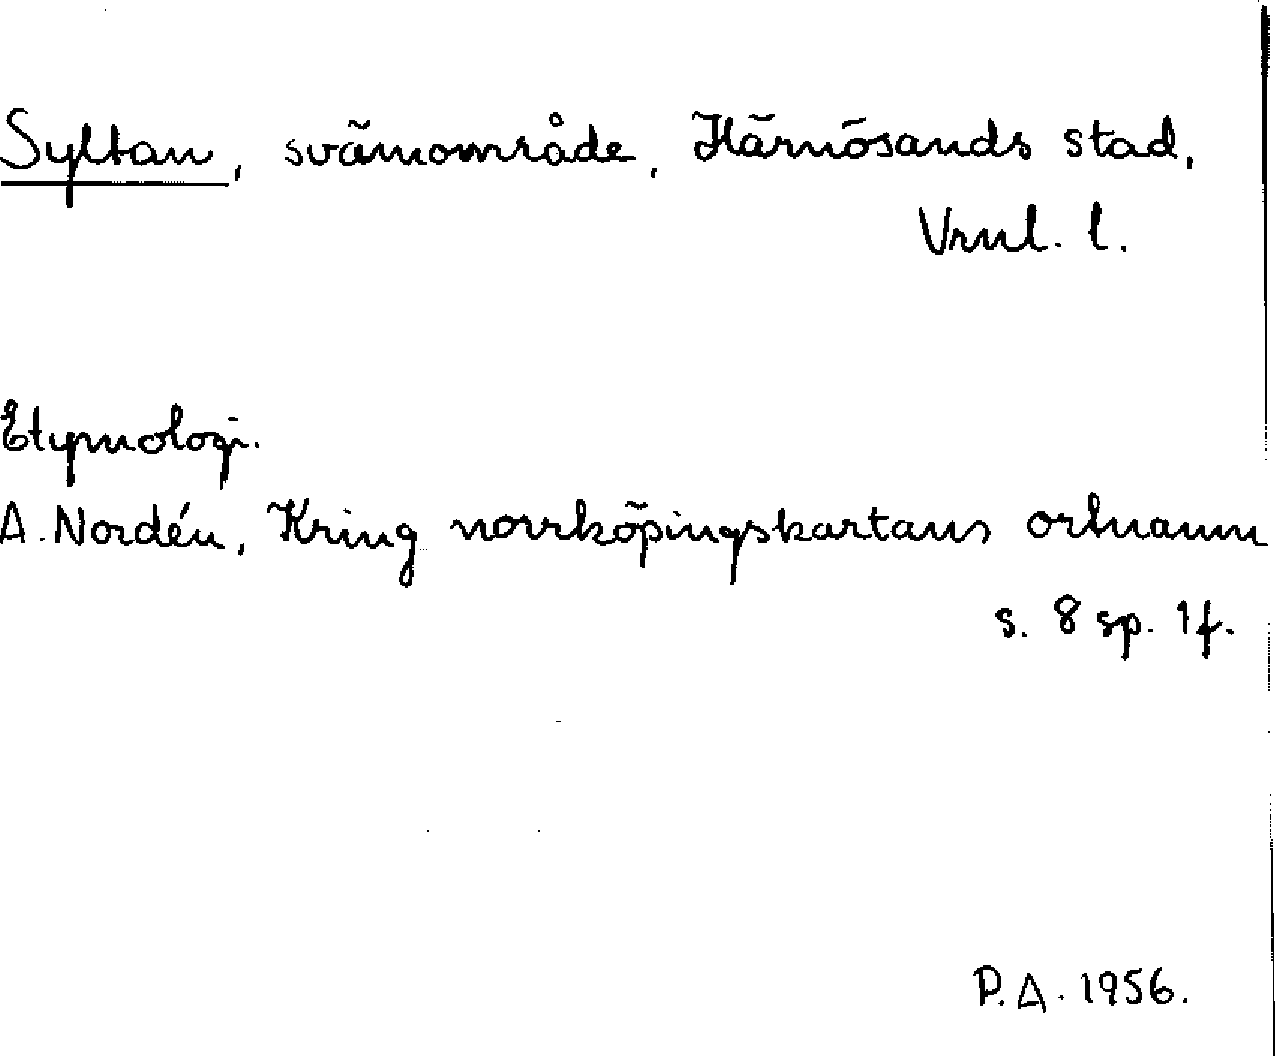 Syltan, svämområde, Härnösands stad,
Vrnl. l.
Etymologi.
A. Nordén, Kring norrköpingskartans ortnamn
s. 8 sp. 1 f.
P. A. 1956.